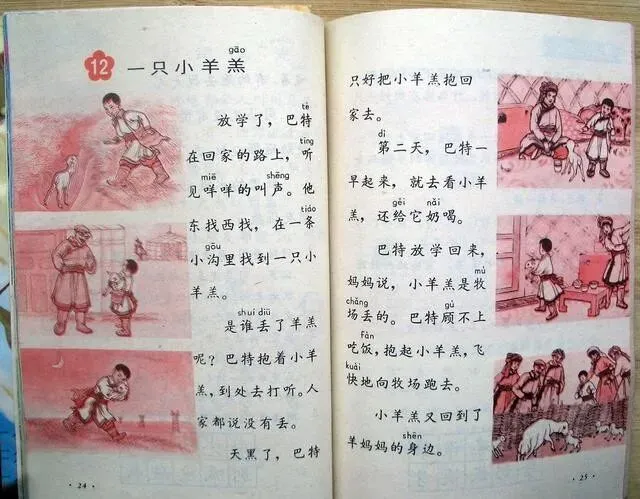 12 一只小羊羔
gāo
放学了，巴特
tè
在回家的路上，听
tīng
见咩咩的叫声。他
miē shēng
东找西找，在一条
tiáo
小沟里找到一只小
gōu
羊羔。
是谁丢了羊羔
shuí diū
呢？巴特抱着小羊
羔，到处去打听。人
家都说没有丢。
天黑了，巴特
· 24 ·
只好把小羊羔抱回
家去。
第二天，巴特一
dì
早起来，就去看小羊
羔，还给它奶喝。
gěi nǎi
巴特放学回来，
妈妈说，小羊羔是牧
mù
场丢的。巴特顾不上
chǎng gù
吃饭，抱起小羊羔，飞
fàn
快地向牧场跑去。
kuài
小羊羔又回到了
羊妈妈的身边。
shēn
· 25 ·